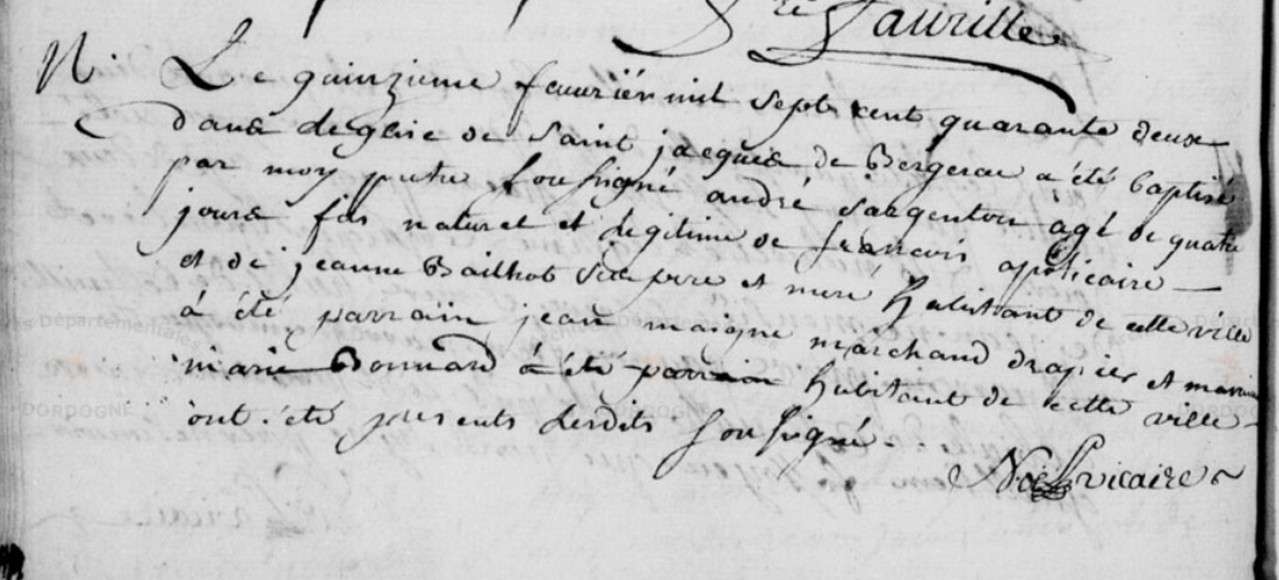 Sr Faurille
N. Le quinzieme feuurier mil sept cent quarante deux
dans leglise de Saint jacques de Bergerac a été baptisé
par moy pretre Sousigné andré Sargenton àgé de quatre
jours fils naturel et legitime de francois apoticaire
et de jeanne Bailhot Ses pere et mere habitant de cette ville
à été parrain jean maigne marchand drapier et marraine
marie Bonnard à été parrain habitant de cette ville
ont été presents lesdits Sousigné.
Noel vicaire
Départementales
DORDOGNE